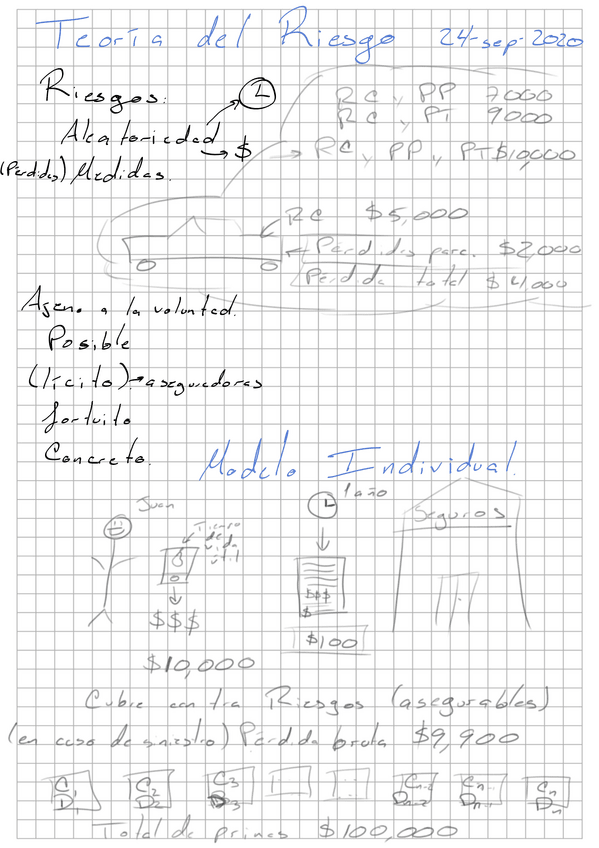 Teoría del Riesgo 24-sep-2020
Riesgos:
Aleatoriedad → $
(Pérdidas) Medidas.
RC y PP 7000
RC y PT 9000
→ RC y PP y PT $10,000
RC $5,000
Pérdidas parc. $2,000
Pérdida total $4,000
Ageno a la voluntad.
Posible
(lícito) → aseguradoras
fortuito
Concreto.
Modelo Individual.
Juan
Tiempo de vida útil
$$$
$10,000
1 año
$$$
$
$100
Seguros
Cubre contra Riesgos (asegurables)
(en caso de siniestro) Pérdida bruta $9,900
C1 C2 C3 Cn-2 Cn-1 Cn
D1 D2 D3 Dn-2 Dn-1 Dn
Total de primas $100,000